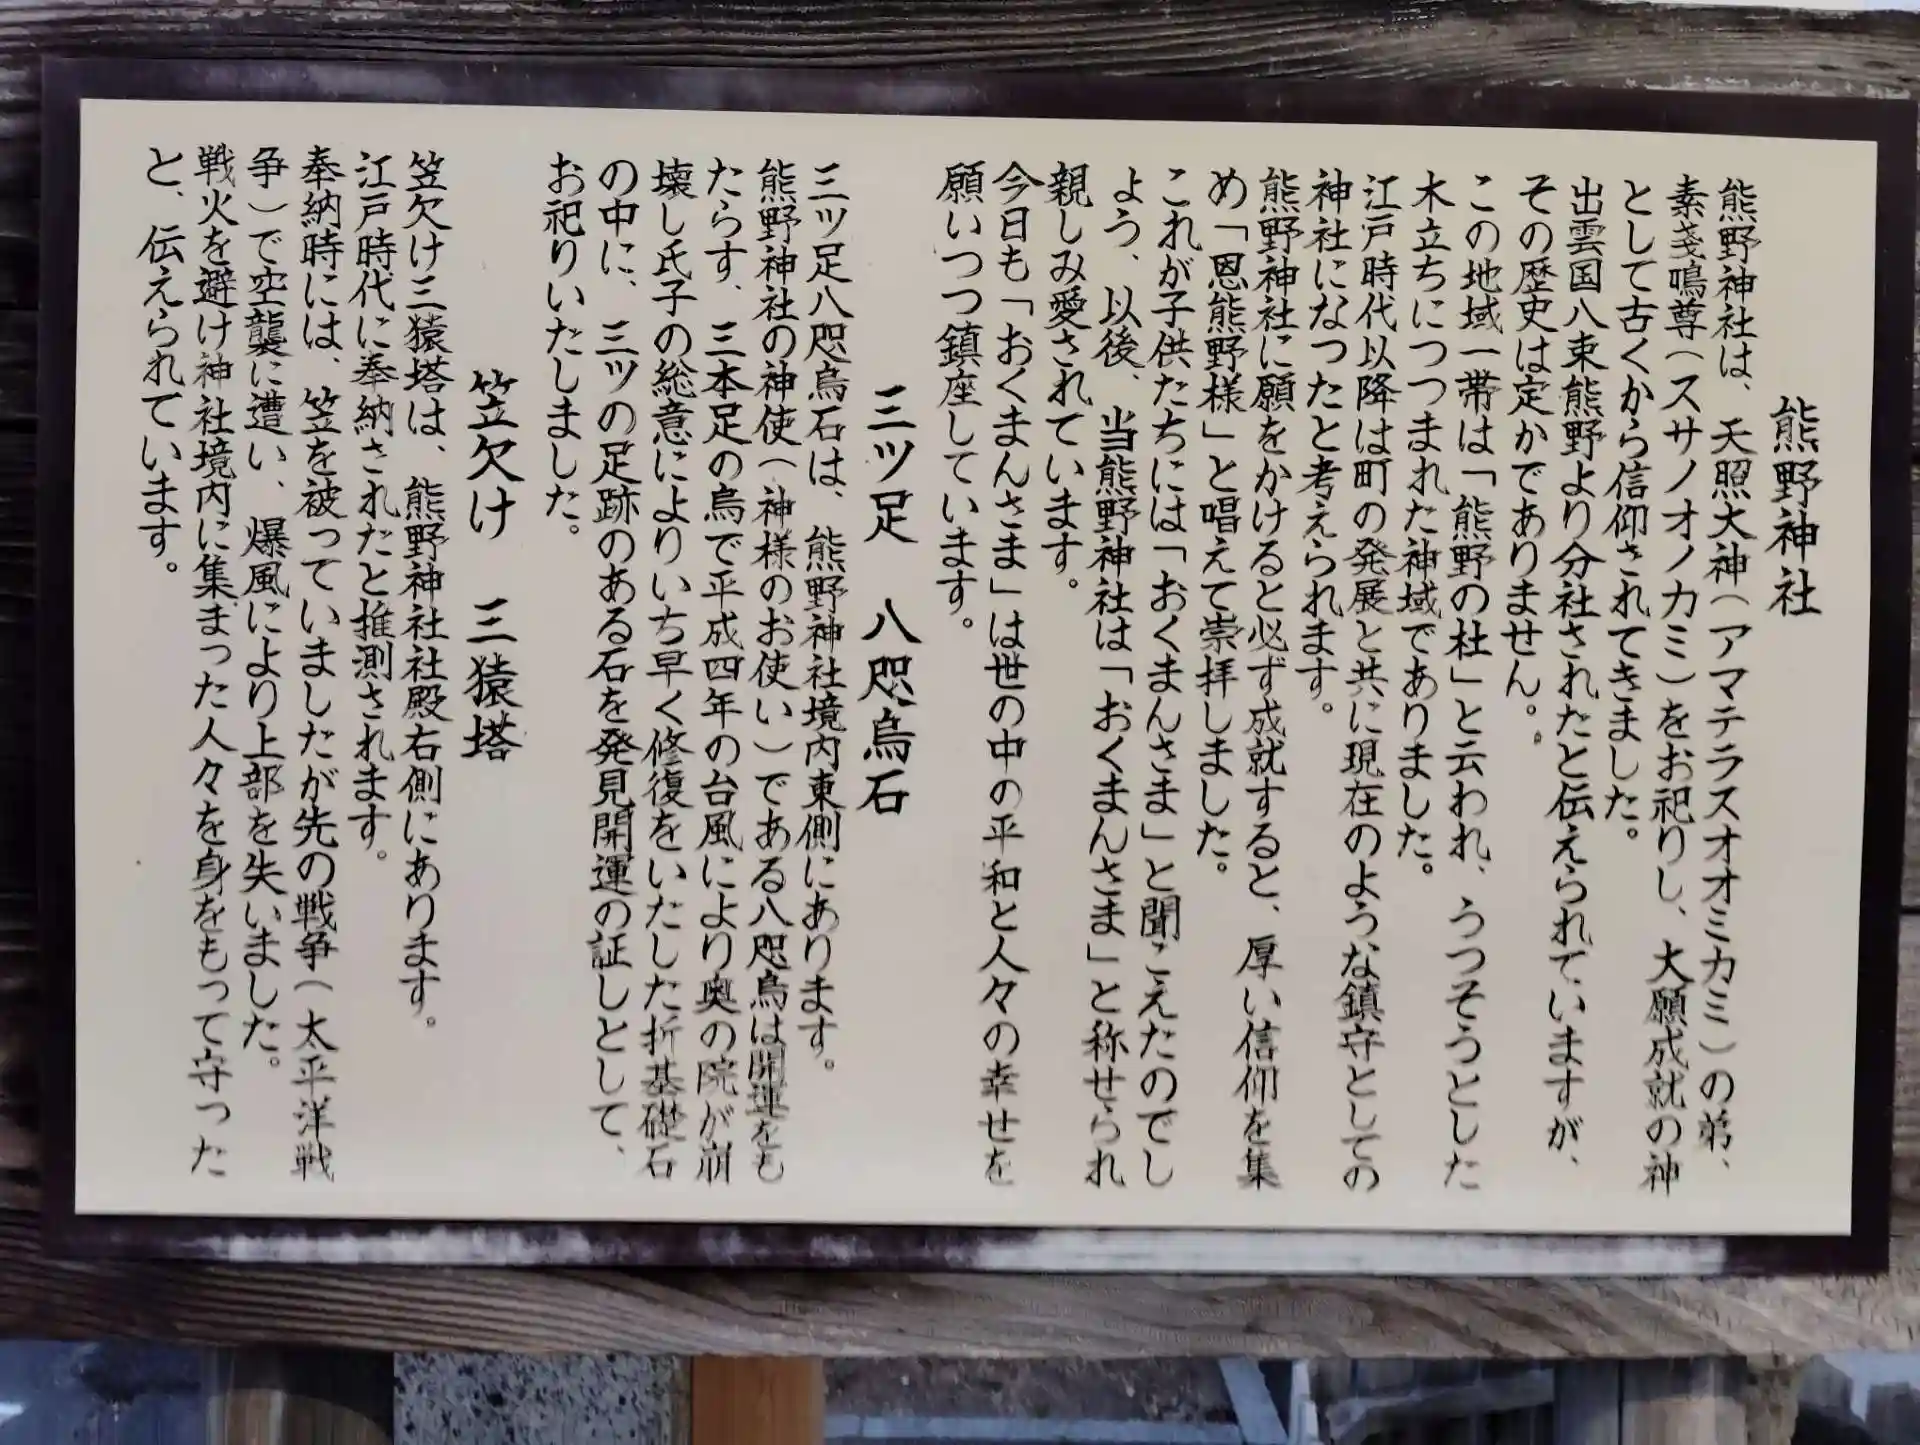 熊野神社
熊野神社は、天照大神（アマテラスオオミカミ）の弟、
素戔嗚尊（スサノオノカミ）をお祀りし、大願成就の神
として古くから信仰されてきました。
出雲国八束熊野より分社されたと伝えられていますが、
その歴史は定かでありません。。
この地域一帯は「熊野の杜」と云われ、うつそうとした
木立ちにつつまれた神域でありました。
江戸時代以降は町の発展と共に現在のような鎮守としての
神社になったと考えられます。
熊野神社に願をかけると必ず成就すると、厚い信仰を集
め「恩熊野様」と唱えて崇拝しました。
これが子供たちには「おくまんさま」と聞こえたのでし
よう、以後、当熊野神社は「おくまんさま」と称せられ
親しみ愛されています。
今日も「おくまんさま」は世の中の平和と人々の幸せを
願いつつ鎮座しています。
三ツ足　八咫烏石
三ツ足八咫烏石は、熊野神社境内東側にあります。
熊野神社の神使（神様のお使い）である八咫烏は開運をも
たらす、三本足の烏で平成四年の台風により奥の院が崩
壊し氏子の総意によりいち早く修復をいたした折基礎石
の中に、三ツの足跡のある石を発見開運の証しとして、
お祀りいたしました。
笠欠け　三猿塔
笠欠け三猿塔は、熊野神社社殿右側にあります。
江戸時代に奉納されたと推測されます。
奉納時には、笠を被っていましたが先の戦争（太平洋戦
争）で空襲に遭い、爆風により上部を失いました。
戦火を避け神社境内に集まった人々を身をもって守った
と、伝えられています。